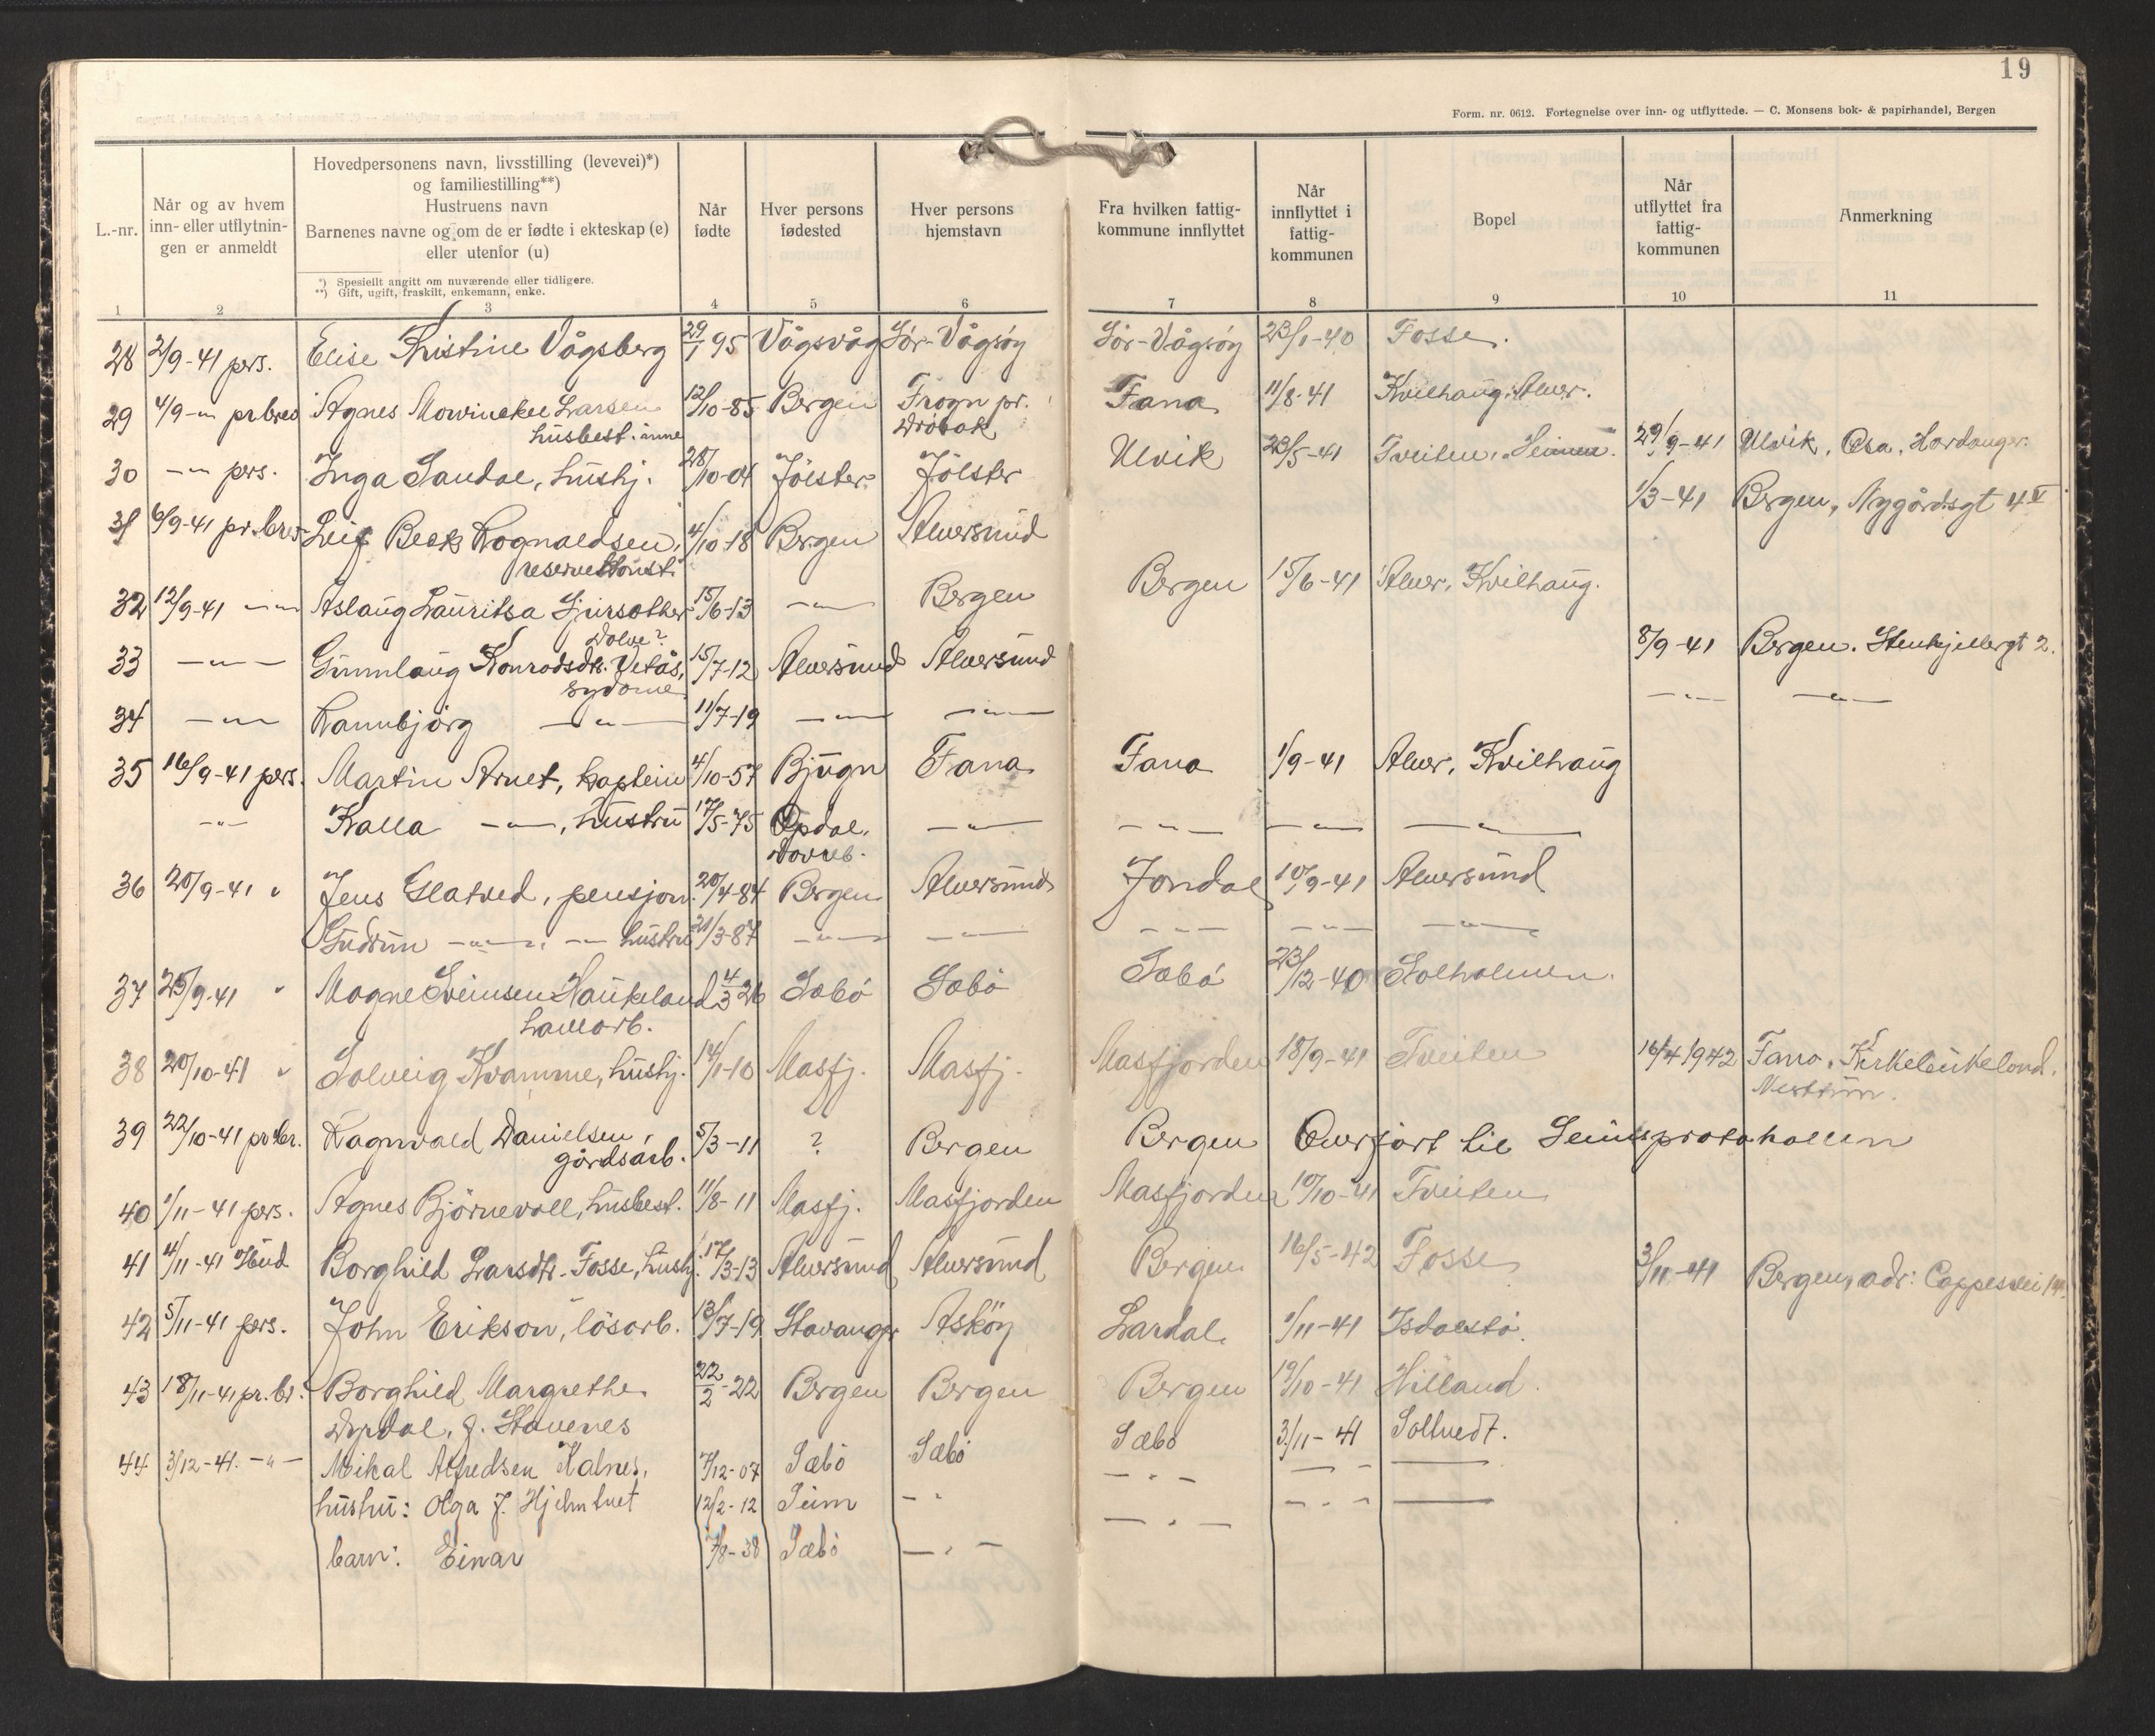 19
Form. nr. 0612. Fortegnelse over inn- og utflyttede. — C. Monsens bok- & papirhandel, Bergen
L.-nr.
Når og av hvem
inn- eller utflytnin-
gen er anmeldt
Hovedpersonens navn, livsstilling (levevei)*)
og familiestilling**)
Hustruens navn
Barnenes navne og om de er fødte i ekteskap (e)
eller utenfor (u)
*) Spesiellt angitt om nuværende eller tidligere.
**) Gift, ugift, fraskilt, enkemann, enke.
Når
fødte
Hver persons
fødested
Hver persons
hjemstavn
Fra hvilken fattig-
kommune innflyttet
Når
innflyttet i
fattig-
kommunen
Bopel
Når
utflyttet fra
fattig-
kommunen
Anmerkning
1 2 3 4 5 6 7 8 9 10 11
28 2/9-41 pers. Elise Kristine Vågsberg 29/1 95 Vågsvåg Sör-Vågsöy Sör-Vågsöy 23/1-40 Fosse.
29 4/9 -"- pr brev Agnes Mowinckel Larsen 12/10-85 Bergen Frogn pr. Fana 11/8-41 Kvilhaug, Alver.
husbest.inne Dröbak
30 -"- pers. Inga Sandal, hushj. 28/10-04 Jölster Jölster Ulvik 23/5-41 Tveiten, Seim 29/9-41 Ulvik, Osa, Hardanger.
31 6/9-41 pr. brev Leif Beck Rognaldsen, 4/10-18 Bergen Alversund 1/3-41 Bergen, Nygårdsgt 4 V
reservekonst.
32 12/9-41 -"- Aslaug Lauritsa 15/6-13 -"- Bergen Bergen 15/6-41 Alver, Kvilhaug.
Dolve?
33 -"- Gunnlaug Konradsdtr. Vetås, 15/7-12 Alversund Alversund 8/9-41 Bergen. Stenkjellergt 2.
sydame
34 -"- Rannbjörg -"- 11/7-19 -"- -"- -"- -"-
35 16/9-41 pers. Martin Arnet, kaptein 4/10-57 Bjugn Fana Fana 1/9-41 Alver, Kvilhaug
-"- Kalla -"-, hustru 17/5-75 Opdal, -"- -"- -"- -"-
Dovreb.
36 20/9-41 " Jens Glatved, pensjon. 20/4-84 Bergen Alversund Jondal 10/9-41 Alversund
Gudrun -"- -"- hustru 21/3-87 -"- -"- -"- -"- -"-
37 25/9-41 " Magne Sveinsen Haukeland 4/3 26 Sæbö Sæbö Sæbö 23/12-40 Solholmen.
38 20/10-41 " Solveig Kvamme, hushj. 14/1-10 Masfj. Masfj. Masfjorden 18/9-41 Tveiten 16/4 1942 Fana, Kirkebirkeland,
Nesttun.
39 22/10-41 pr br. Ragnvald Danielsen, 5/3-11 ? Bergen Bergen Overfört til Seimsprotokollen
gårdsarb.
40 1/11-41 pers. Agnes Björnevoll, husbest. 11/8-11 Masfj. Masfjorden Masfjorden 10/10-41 Tveiten
41 4/11-41 Bud Borghild Larsdtr. Fosse, hushj. 17/3-13 Alversund Alversund Bergen 16/5-42 Fosse 3/11-41 Bergen, adr: Cappesvei
42 5/11-41 pers. John Erikson, lösarb. 13/7-19 Stavanger Asköy Lardal 1/11-41 Isdalstö.
43 18/11-41 pr. br. Borghild Margrethe 22/2-22 Bergen Bergen Bergen 19/10-41 Hilland
Dyrdal, f. Stavenes
44 3/12-41. -"- Mikal Alfredsen Kalnes, 7/12-07 Sæbö Sæbö Sæbö 3/11-41 Soltvedt.
hustru: Olga J. Hjelmtvet 12/2-12 Seim -"- -"- -"-
barn: Einar 7/8-38 Sæbö -"- -"- -"-